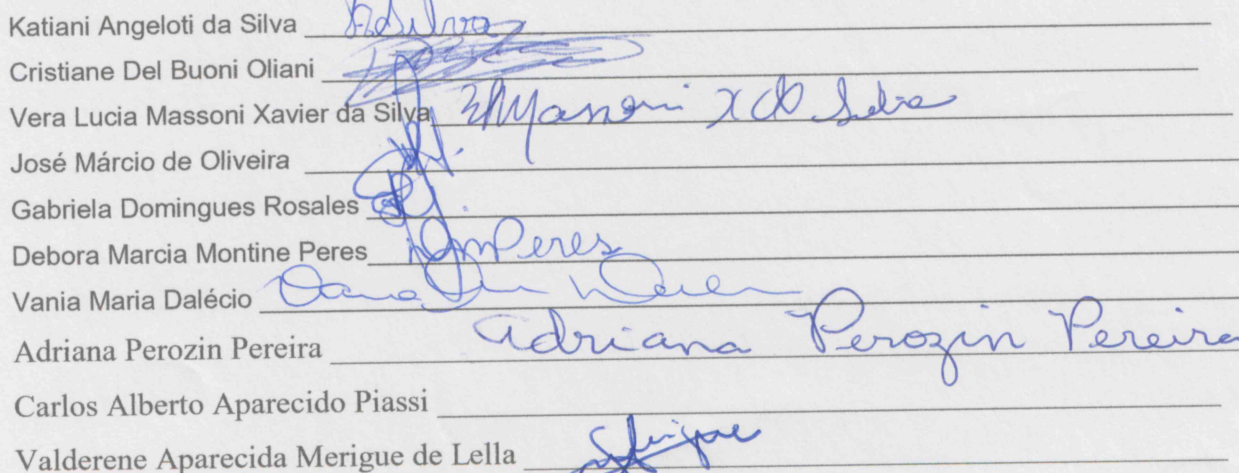 Katiani Angeloti da Silva
Cristiane Del Buoni Oliani
Vera Lucia Massoni Xavier da Silva
José Márcio de Oliveira
Gabriela Domingues Rosales
Debora Marcia Montine Peres DmPeres
Vania Maria Dalécio
Adriana Perozin Pereira Adriana Perozin Pereira
Carlos Alberto Aparecido Piassi
Valderene Aparecida Merigue de Lella